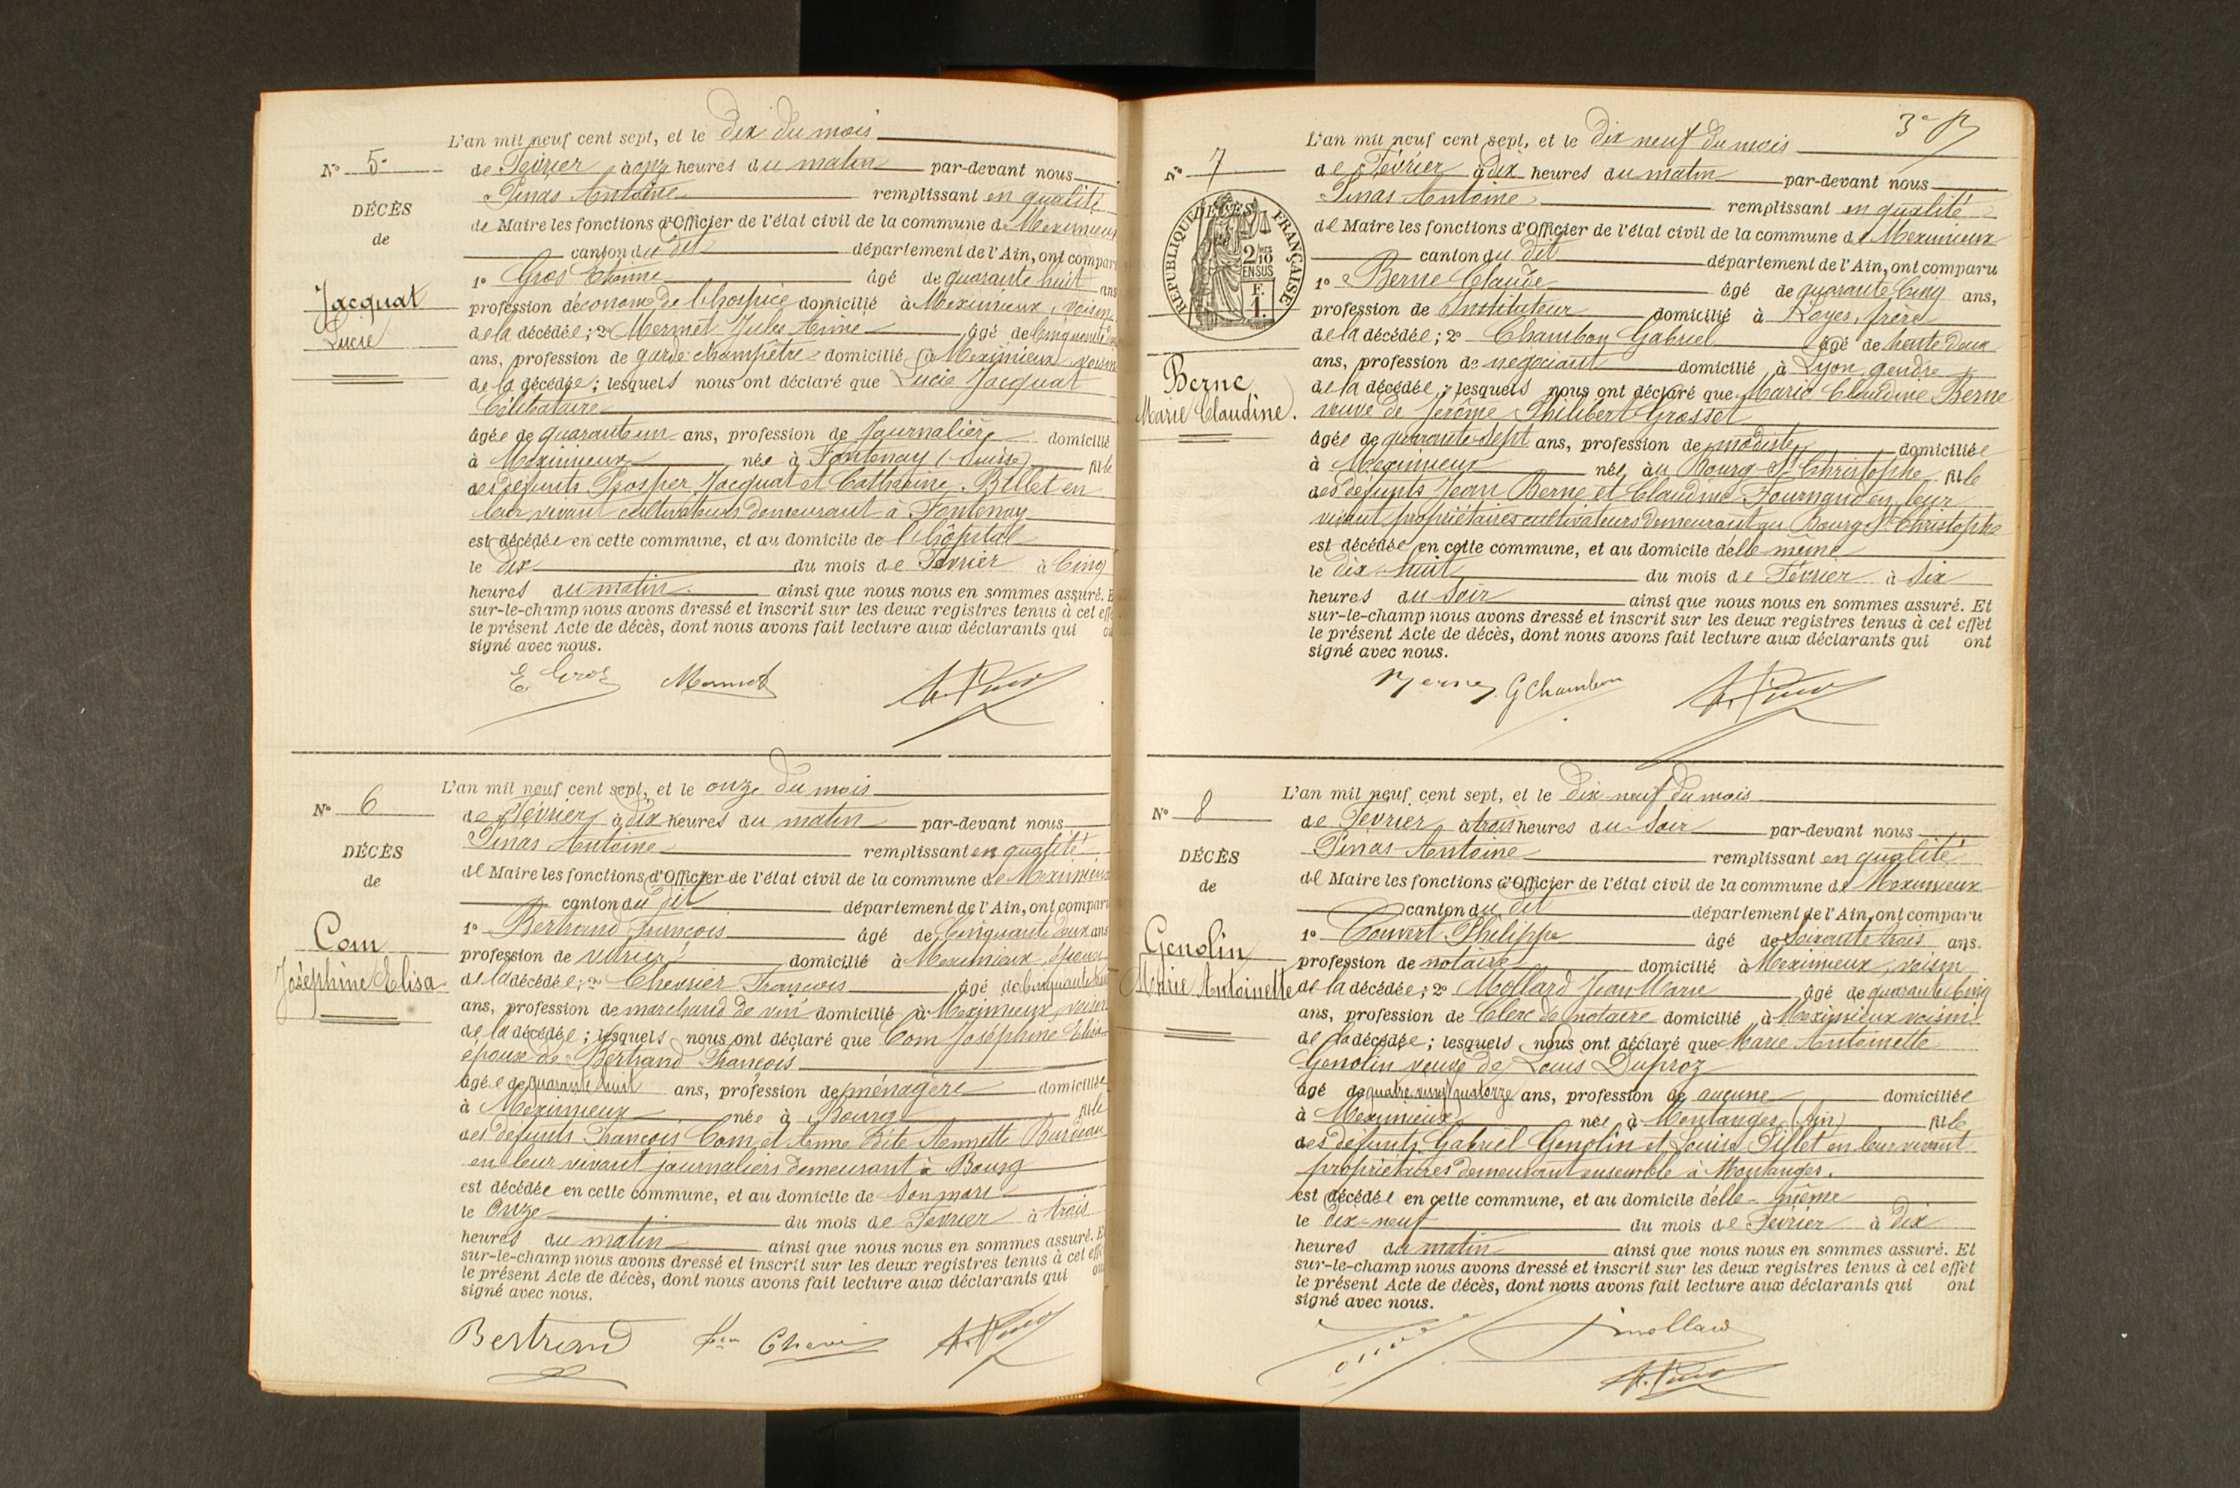 L'an mil neuf cent sept, et le dix du mois
N° 5
de Février à onze heures du matin par-devant nous
Pinas Antoine remplissant en qualité
DÉCÈS
de Maire les fonctions d'Officier de l'état civil de la commune de Meximieux
de
canton du dit département de l'Ain, ont compar
1° Gros Etienne âgé de quarante huit ans
Jacquat
profession d'économe de l'hospice domicilié à Meximieux, voisin
Lucie
de la décédée; 2° Mermet Jules Aimé âgé de Cinquante
ans, profession de garde-champêtre domicilié à Meximieux voisin
de la décédée; lesquels nous ont déclaré que Lucie Jacquat
Célibataire
âgée de quarante un ans, profession de Journalière domicilié
à Meximieux née à Fontenay (Suisse) fille
des défunts Prosper Jacquat et Catherine Billet en
leur vivant cultivateurs demeurant à Fontenay
est décédée en cette commune, et au domicile de l'hôpital
le dix du mois de Février à Cinq
heures du matin ainsi que nous nous en sommes assuré. E
sur-le-champ nous avons dressé et inscrit sur les deux registres tenus à cet eff
le présent Acte de décès, dont nous avons fait lecture aux déclarants qui on
signé avec nous.
E Gros Mermet A. Pinas
L'an mil neuf cent sept, et le onze du mois
N° 6
de Février à dix heures du matin par-devant nous
Pinas Antoine remplissant en qualité
DÉCÈS
de Maire les fonctions d'Officier de l'état civil de la commune de Meximieux
de
canton du dit département de l'Ain, ont comparu
1° Bertrand François âgé de Cinquante deux ans
Com
profession de vitrier domicilié à Meximieux, époux
Joséphine Elisa
de la décédée; 2° Chevrier François âgé de Cinquante
ans, profession de marchand de vin domicilié à Meximieux, voisin
de la décédée; lesquels nous ont déclaré que Com Joséphine Elisa
épouse de Bertrand François
âgée de quarante huit ans, profession de ménagère domiciliée
à Meximieux née à Bourg fille
des défunts François Com et Anne dite Annette Burdeau
en leur vivant journaliers demeurant à Bourg
est décédée en cette commune, et au domicile de son mari
le Onze du mois de Février à trois
heures du matin ainsi que nous nous en sommes assuré. E
sur-le-champ nous avons dressé et inscrit sur les deux registres tenus à cet effe
le présent Acte de décès, dont nous avons fait lecture aux déclarants qui on
signé avec nous.
Bertrand A. Pinas
3e
L'an mil neuf cent sept, et le dix neuf du mois
N° 7
de Février à dix heures du matin par-devant nous
Pinas Antoine remplissant en qualité
RÉPUBLIQUE FRANÇAISE
DÉCÈS
2/10 EN SUS
F. 1.
de Maire les fonctions d'Officier de l'état civil de la commune de Meximieux
canton du dit département de l'Ain, ont comparu
1° Berne Claude âgé de quarante Cinq ans,
profession de Instituteur domicilié à Loyes, frère
de la décédée; 2° Chambon Gabriel âgé de trente deux
ans, profession de négociant domicilié à Lyon, gendre
Berne
de la décédée; lesquels nous ont déclaré que Marie Claudine Berne
Marie Claudine.
veuve de Jérôme Philibert Grosset
âgée de quarante-sept ans, profession de modiste domiciliée
à Meximieux née au Bourg-St Christophe fille
des défunts Jean Berne et Claudine Fournand en leur
vivant propriétaires cultivateurs demeurant au Bourg St Christophe
est décédée en cette commune, et au domicile d'elle-même
le dix-huit du mois de Février à Six
heures du Soir ainsi que nous nous en sommes assuré. Et
sur-le-champ nous avons dressé et inscrit sur les deux registres tenus à cet effet
le présent Acte de décès, dont nous avons fait lecture aux déclarants qui ont
signé avec nous.
Berne G Chambon A. Pinas
L'an mil neuf cent sept, et le dix-neuf du mois
N° 8
de Février à trois heures du Soir par-devant nous
Pinas Antoine remplissant en qualité
DÉCÈS
de Maire les fonctions d'Officier de l'état civil de la commune de Meximieux
de
canton du dit département de l'Ain, ont comparu
1° Convert Philippe âgé de Soixante trois ans.
Genolin
profession de notaire domicilié à Meximieux, voisin
Marie Antoinette
de la décédée; 2° Mollard Jean Marie âgé de quarante Cinq
ans, profession de Clerc de notaire domicilié à Meximieux voisin
de la décédée; lesquels nous ont déclaré que Marie Antoinette
Genolin veuve de Louis Duproz
âgé de quatre vingt quatorze ans, profession de aucune domiciliée
à Meximieux née à Montanges (Ain) fille
des défunts Gabriel Genolin et Louise Pillet en leur vivant
propriétaires demeurant ensemble à Montanges.
est décédée en cette commune, et au domicile d'elle-même
le dix-neuf du mois de Février à dix
heures du matin ainsi que nous nous en sommes assuré. Et
sur-le-champ nous avons dressé et inscrit sur les deux registres tenus à cet effet
le présent Acte de décès, dont nous avons fait lecture aux déclarants qui ont
signé avec nous.
Mollard
A. Pinas